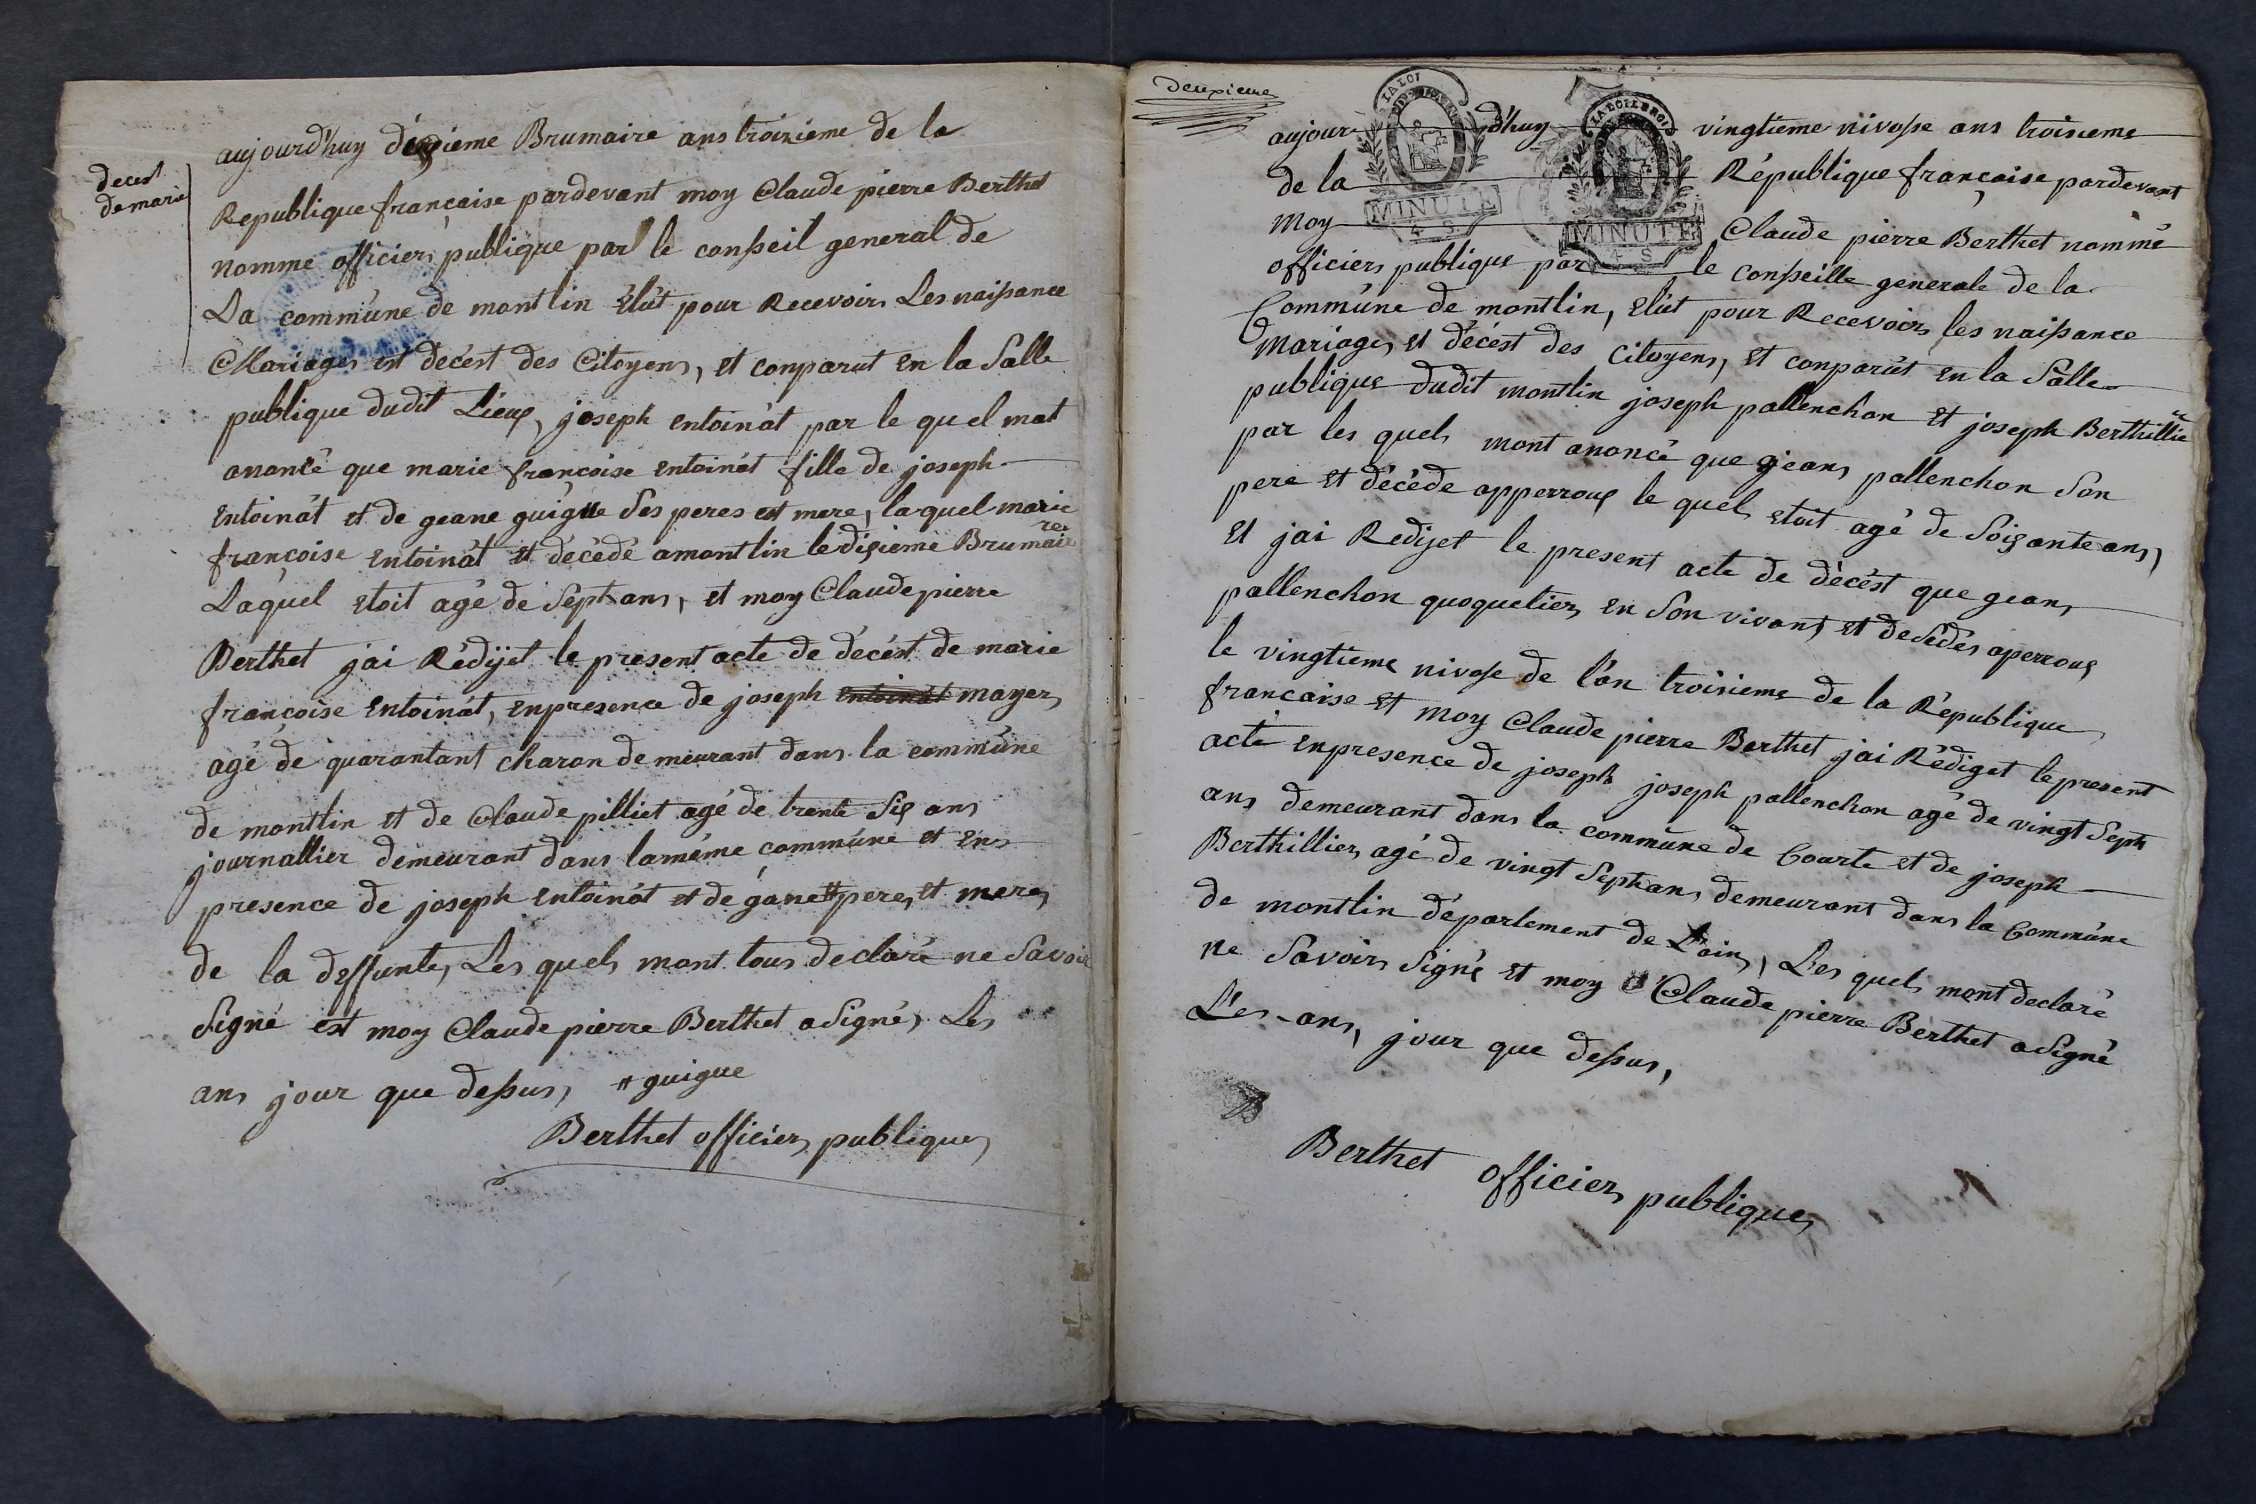 decest
de marie
aujourd'huy dixieme Brumaire ans troizieme de la
Republique francaise pardevant moy Claude pierre Berthet
nomme officier publique par le conseil general de
La commune de montlin Elút pour Recevoir Les naissance
Mariages est decest des Citoyens, et conparut en la Salle
publique dudit Lieux, joseph entoinát par le quel mat
anoncé que marie francoise entoinát fille de joseph
entoinát et de geane guigue Ses peres est mere, laquel marie
francoise entoinát et décédé amontlin ledixieme Brumaire
Laquel etoit agé de Septans, et moy Claude pierre
Berthet jai Rédijet le present acte de décést de marie
francoise entoinát, enpresence de joseph entoinát mayer
agé de quarantant charon demeurant dans la commúne
de montlin et de Claude pilliet agé de trente Six ans
journallier demeurant dans laméme commúne et En
presence de joseph entoinát et de gane # pere, et mere,
de la deffunte, Les quels mont tous declaré ne Savoir
Signé est moy Claude pierre Berthet a Signé, Les
ans jour que dessus, # guigue
Berthet officier publique
deuxieme
LA LOI
MINUTE
4 S
LA LOI LE ROI
MINUTE
4 S
aujour d'huy vingtieme nivosse ans troisieme
de la République francaise pardevant
moy Claude pierre Berthet nommé
officier publique par le conseille generale de la
Commúne de montlin, elút pour Recevoir les naissance
Mariages et décést des citoyens, et conparút en la Salle
publique dudit montlin joseph pallenchon et joseph Berthillié
par les quels mont anoncé que geans pallenchon Son
pere et décéde apperroux le quel etoit agé de Soixanteans,
et jai Redijet le present acte de décést que geans
pallenchon quoquetier en Son vivant et desédés aperroux
le vingtieme nivose de l'an troisieme de la République
francaise et moy Claude pierre Berthet jai Rédiget lepresent
acte enpresence de joseph joseph pallenchon agé de vingt Sept
ans demeurant dans la commúne de Courte et de joseph
Berthillier agé de vingt Septans demeurant dans la Commúne
de montlin département de Lain, Les quels mont declaré
ne Savoir Signé et moy Claude pierre Berthet a Signé
Lés ans, jour que dessus,
Berthet officier publique